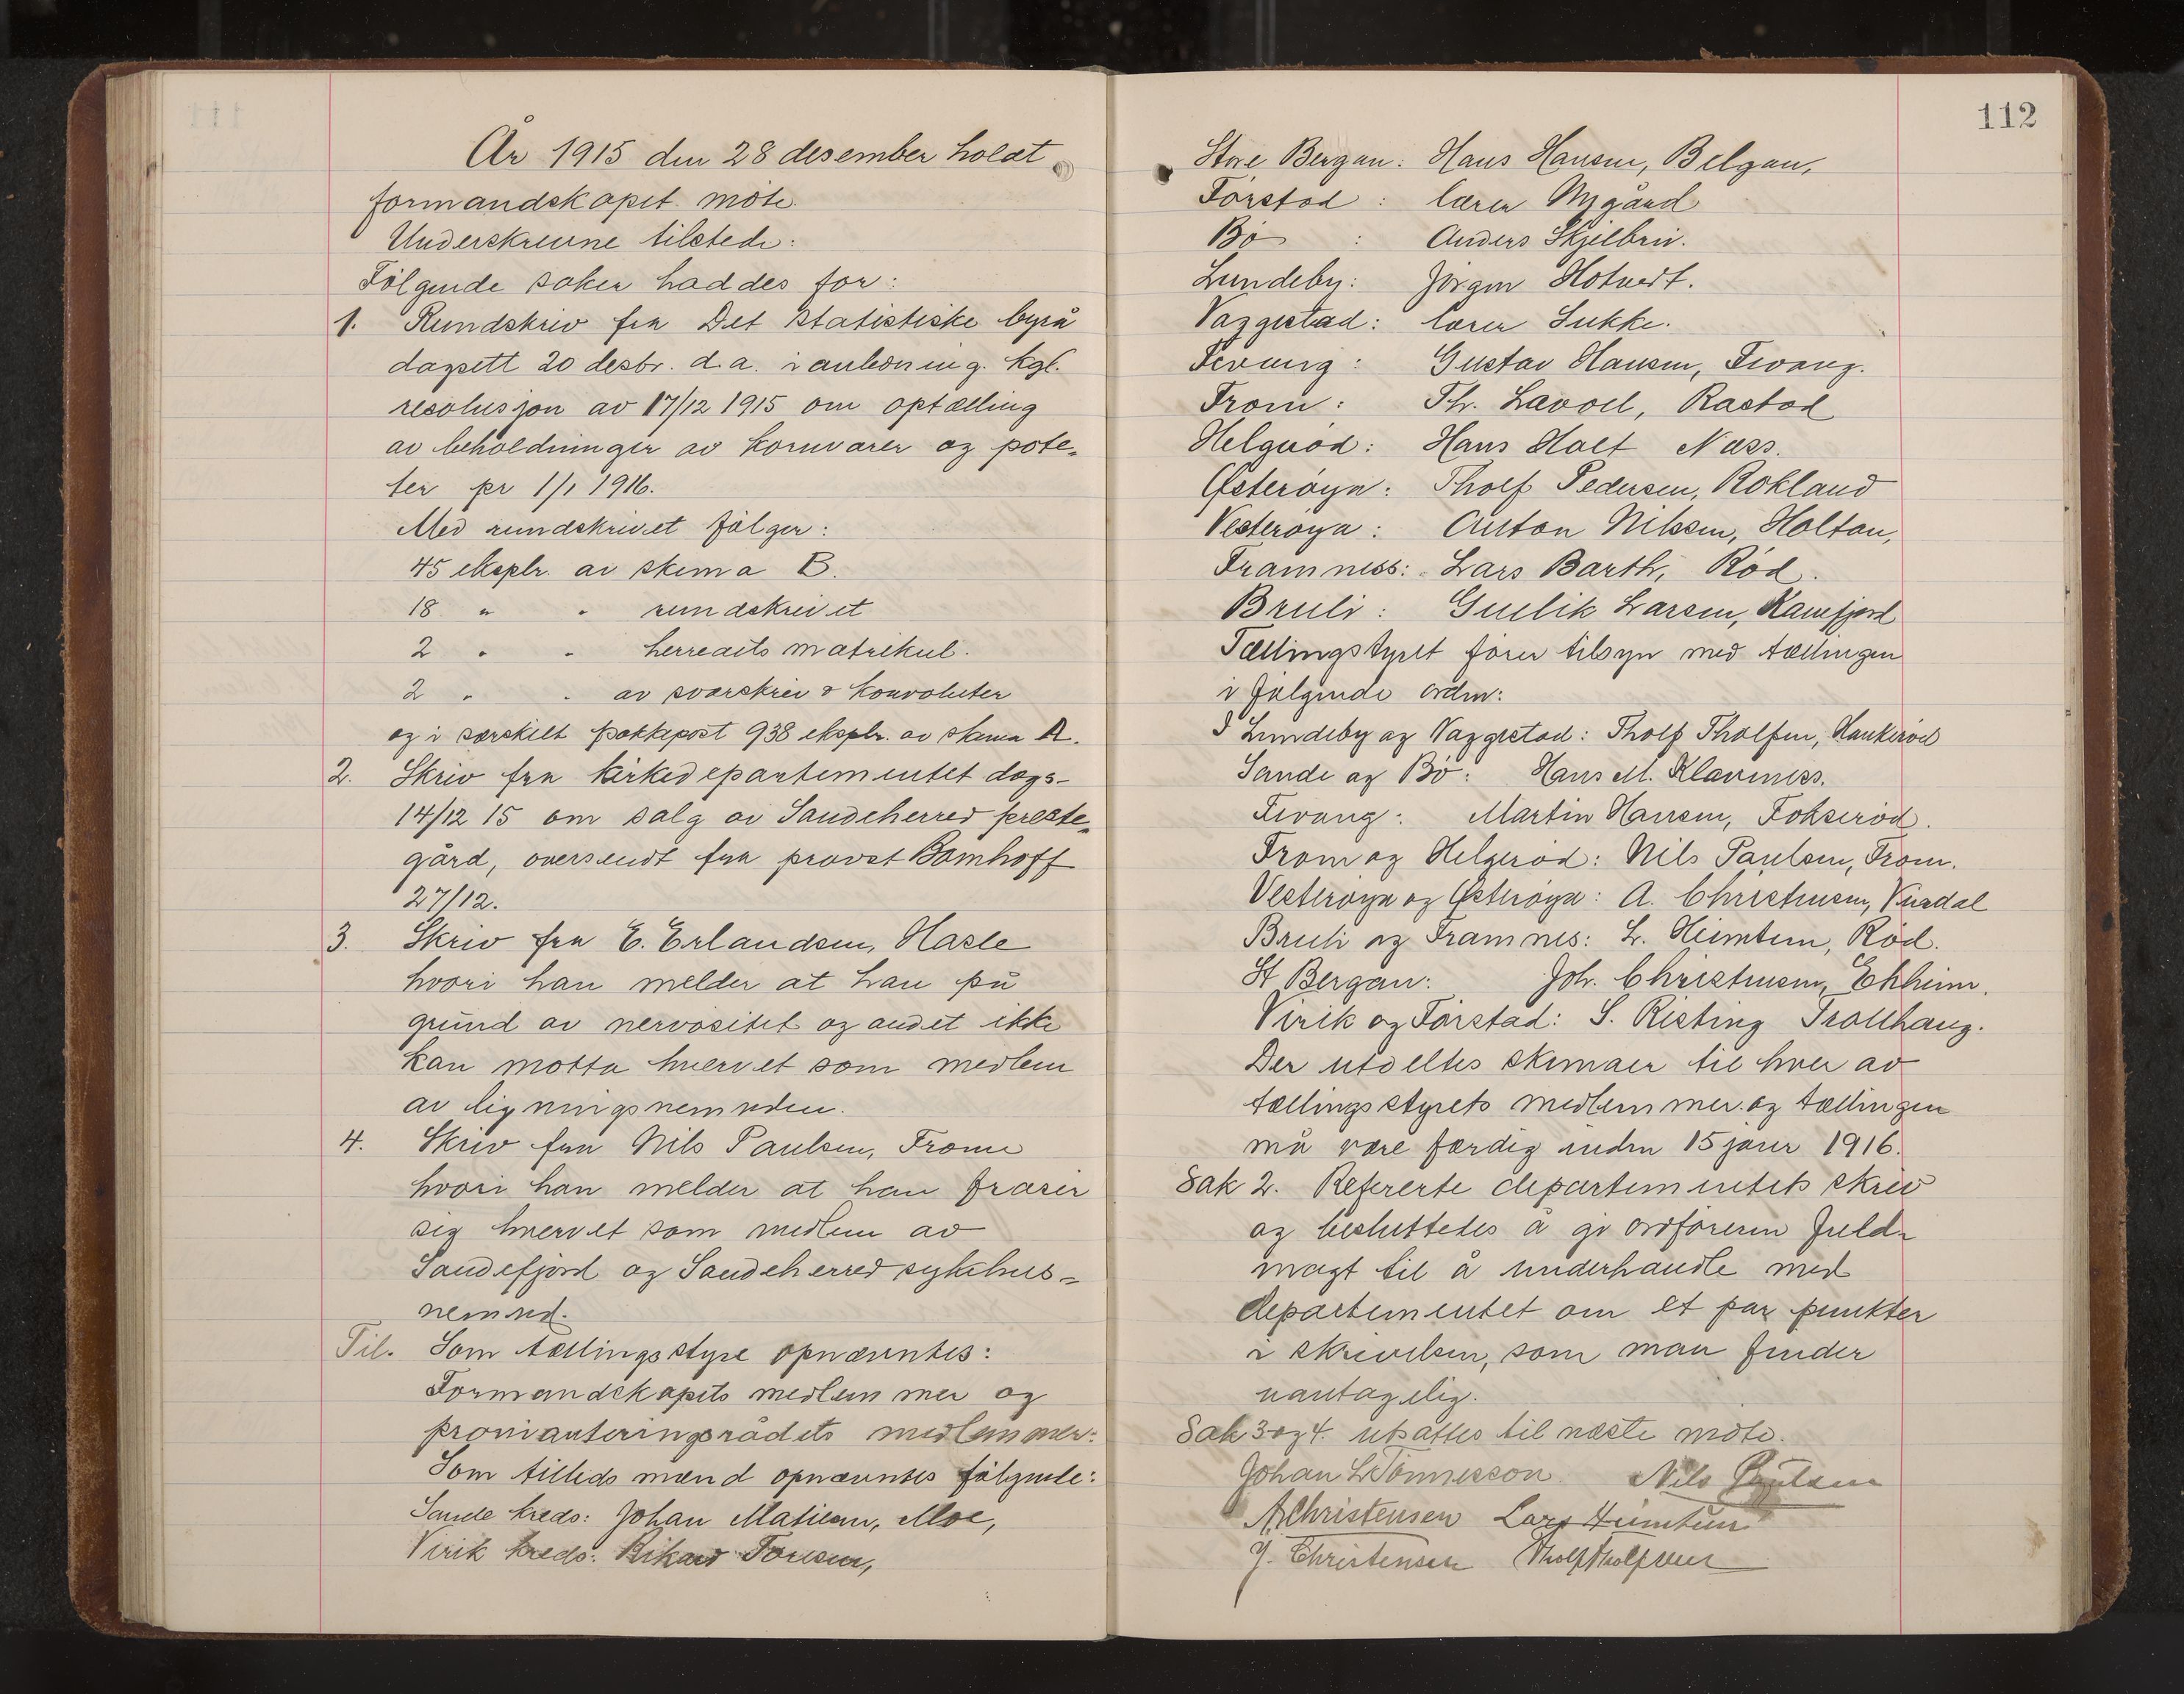 År 1915 den 28 desember holdt
formandskapet møte.
Underskrevne tilstede:
Følgende saker haddes for:
1. Rundskriv fra Det statistiske byrå
dagsett 20 desbr. d.a. i anledning kgl.
resolusjon av 17/12 1915 om optælling
av beholdninger av kornvarer og pote-
ter pr 1/1 1916.
Med rundskrivet følger:
45 eksplr. av skema B.
18 " " rundskrivet
2 " " herredets matrikul.
2 " " av svarskriv & konvoluter
og i særskilt pakkepost 938 eksplr. av skema A.
2. Skriv fra kirkedepartementet dags-
14/12 15 om salg av Sandeherred preste-
gård, oversendt fra provst Bomhoff
27/12.
3. Skriv fra E. Erlandsen, Hasle
hvori han melder at han på
grund av nervøsitet og andet ikke
kan motta hvervet som medlem
av ligningsnemnden.
4. Skriv fra Nils Paulsen, Fromm
hvori han melder at han frasier
sig hvervet som medlem av
Sandefjord og Sandeherred sykehus-
nemnd.
Til. Som tællingsstyre opnævntes:
Formandskapets medlemmer og
provianteringsrådets medlemmer:
Som tillidsmænd opnævntes følgende:
Sande kreds: Johan Matisen, Moe,
Virik kreds: Rikard Toresen,
112
Store Bergan: Hans Hansen, Belgau,
Førstad: lærer Nygård
Bø: Anders Skjelbrei.
Lundeby: Jørgen Hotvedt.
Vaggestad: lærer Sukke.
Fevang: Gustav Hansen, Fevang.
From: Th. Lavoll, Rastad
Helgerød: Hans Holt Næss.
Østerøya: Tholf Pedersen, Rokland
Vesterøya: Anton Nilssen, Holtan,
Framness: Lars Barth, Rød.
Bruli: Gulik Larsen, Ranefjord
Tællingstyret fører tilsyn med tællingen
i følgende orden:
I Lundeby og Vaggestad: Tholf Tholfsen, Haukerød
Sande og Bø: Hans M. Klavness.
Fevang: Martin Hansen, Fokserød.
From og Helgerød: Nils Paulsen, From.
Vesterøya og Østerøya: A. Christensen, Virdal
Bruli og Framnes: L. Heimtun, Rød.
St Bergan: Joh. Christensen, Ekheim.
Virik og Førstad: S. Risting Trollhaug.
Der utdeltes skemaer til hver av
tællingsstyrets medlemmer og tællingen
må være færdig inden 15 januar 1916.
Sak 2. Refererte departementets skriv
og besluttedes å gi ordføreren fuld-
magt til å underhandle med
departementet om et par punkter
i skrivelsen, som man finder
uantagelig.
Sak 3 og 4. utsattes til næste møte.
Johan L Tønnesson Nils Paulsen
A Christensen Lars Heimtun
J. Christensen Tholf Tholfsen